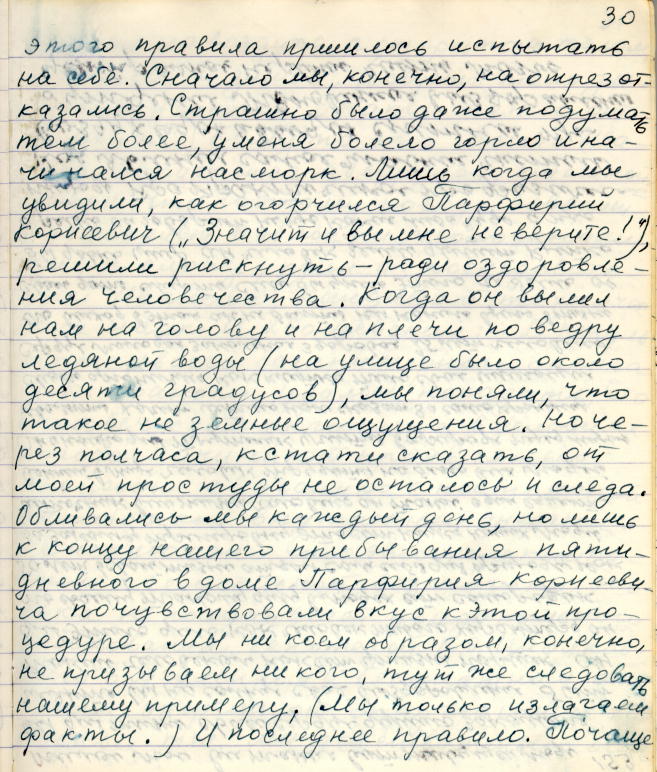 30
этого правила пришлось испытать
на себе. Сначало мы, конечно, на отрез от-
казались. Страшно было даже подумать
тем более, у меня болело горло и на-
чинался насморк. Лишь когда мы
увидили, как огорчился Парфирий
Корнеевич („Значит и вы мне не верите!"),
решили рискнуть – ради оздоровле-
ния человечества. Когда он вылил
нам на голову и на плечи по ведру
ледяной воды (на улице было около
десяти градусов), мы поняли, что
такое не земные ощущения. Но че-
рез полчаса, кстати сказать, от
моей простуды не осталось и следа.
Обливались мы каждый день, но лишь
к концу нашего прибывания пяти-
дневного в доме Парфирия Корнееви-
ча почувствовали вкус к этой про-
цедуре. Мы ни коем образом, конечно,
не призываем никого, тут же следовать
нашему примеру. (Мы только излагаем
факты.) И последнее правило. Почаще